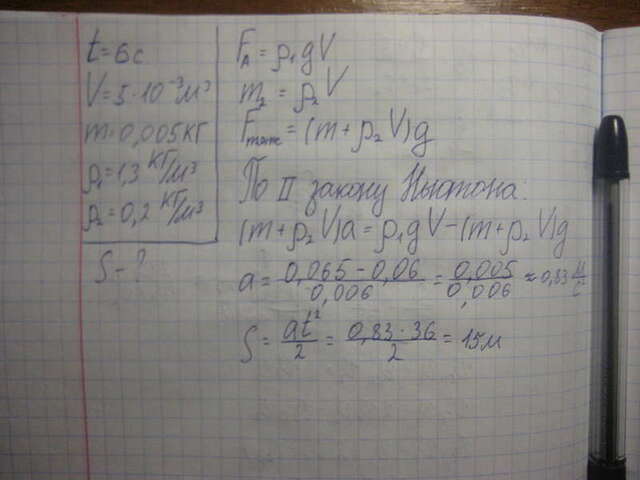 t = 6c
V = 5·10⁻³ м³
m = 0,005 кг
ρ₁ = 1,3 кг/м³
ρ₂ = 0,2 кг/м³
S - ?
F_A = ρ₁gV
m₂ = ρ₂V
F_тяж = (m + ρ₂V)g
По II закону Ньютона:
(m + ρ₂V)a = ρ₁gV - (m + ρ₂V)g
a = (0,065 - 0,06)/0,006 = 0,005/0,006 ≈ 0,83 м/с²
S = at²/2 = (0,83·36)/2 = 15м